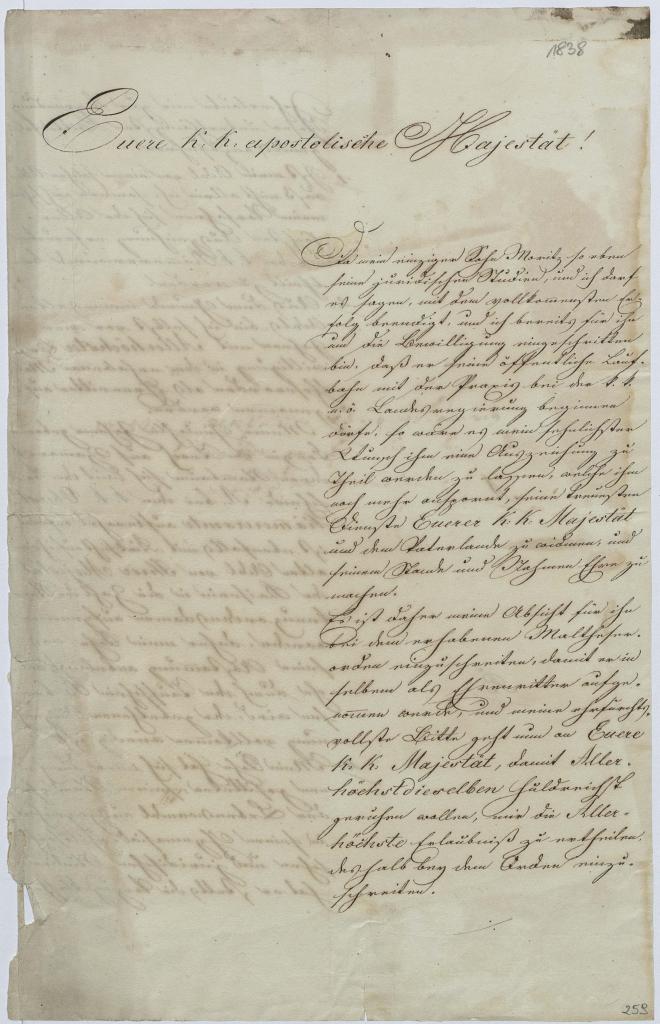 1838
Euere k. k. apostolische Majestät!
Da mein einziger Sohn Moritz so eben
seine juridischen Studien, und ich darf
es sagen, mit dem vollkommensten Er-
folg beendigt, und ich bereits für ihn
um die Bewilligung eingeschritten
bin, daß er seine öffentliche Lauf-
bahn mit der Praxis bei der k. k.
n. ö. Landesregierung beginnen
dürfe, so wäre es mein sehnlichster
Wunsch ihm eine Auszeichnung zu
Theil werden zu lassen, welche ihn
noch mehr anspornt, seine treuesten
Dienste Euerer k. k. Majestät
und dem Vaterlande zu widmen, und
seinem Stande und Nahmen Ehre zu
machen.
Es ist daher meine Absicht für ihn
bei dem erhabenen Maltheser-
orden einzuschreiten, damit er in
selbem als Ehrenritter aufge-
nommen werde, und meine ehrfurchts-
vollste Bitte geht nun an Euere
k. k. Majestät, damit Aller-
höchstdieselben huldreichst
geruhen wollen, mir die Aller-
höchste Erlaubniß zu ertheilen,
deshalb bey dem Orden einzu-
schreiten.
259